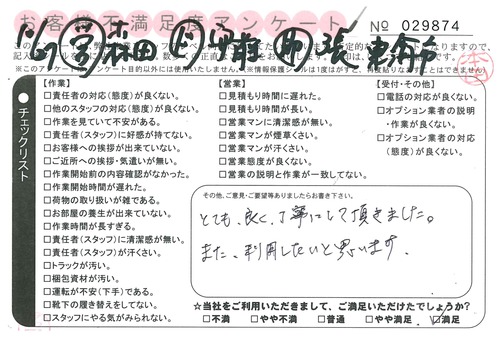 お客様不満足度アンケート
No 029874
●チェックリスト
【作業】
□責任者の対応(態度)が良くない。
□他のスタッフの対応(態度)が良くない。
□作業を見ていて不安がある。
□責任者(スタッフ)に好感が持てない。
□お客様への挨拶が出来ていない。
□ご近所への挨拶・気遣いが無い。
□作業開始前の内容確認がなかった。
□作業開始時間が遅れた。
□荷物の取り扱いが雑である。
□お部屋の養生が出来ていない。
□作業時間が長すぎる。
□責任者(スタッフ)に清潔感が無い。
□責任者(スタッフ)が汗くさい。
□トラックが汚い。
□梱包資材が汚い。
□運転が不安(下手)である。
□靴下の履き替えをしてない。
□スタッフにやる気がみられない。
【営業】
□見積もり時間に遅れた。
□見積もり時間が長い。
□営業マンに清潔感が無い。
□営業マンが煙草くさい。
□営業マンが汗くさい。
□営業態度が良くない。
□営業の説明と作業が一致してない。
【受付・その他】
□電話の対応が良くない。
□オプション業者の説明
・作業が良くない。
□オプション業者の対応
(態度)が良くない。
その他、ご意見・ご要望等ありましたらお書き下さい。
とても、良く、丁寧にして頂きました。
また、利用したいと思います。
☆当社をご利用いただきまして、ご満足いただけたでしょうか?
□不満 □やや不満 □普通 □やや満足 ☑満足